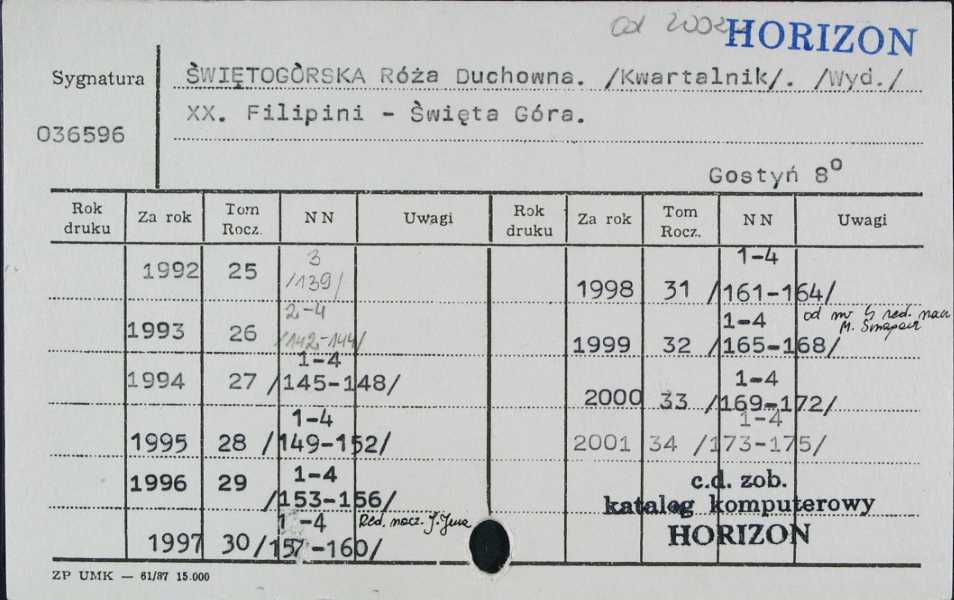 od 2002 HORIZON
Sygnatura
036596
ŚWIĘTOGÓRSKA Róża Duchowna. /Kwartalnik/. /Wyd./
XX. Filipini - Święta Góra.
Gostyń 8°
Rok druku Za rok Tom Rocz. NN Uwagi Rok druku Za rok Tom Rocz. NN Uwagi
1992 25 3 /139/
1993 26 2-4 /142-144/
1994 27 1-4 /145-148/
1995 28 1-4 /149-152/
1996 29 1-4 /153-156/
1997 30 1-4 /157-160/ Red. nacz.
1998 31 1-4 /161-164/
1999 32 1-4 /165-168/ od nr 4 red. nacz M.
2000 33 1-4 /169-172/
2001 34 1-4 /173-175/
c.d. zob.
katalog komputerowy
HORIZON
ZP UMK — 61/87 15.000